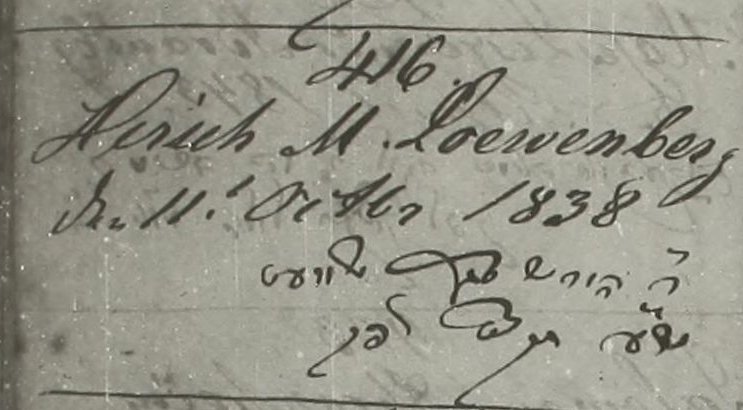 416.
Hirsch M. Loewenberg
d. 11. Octbr 1838
ר הירש
לפק